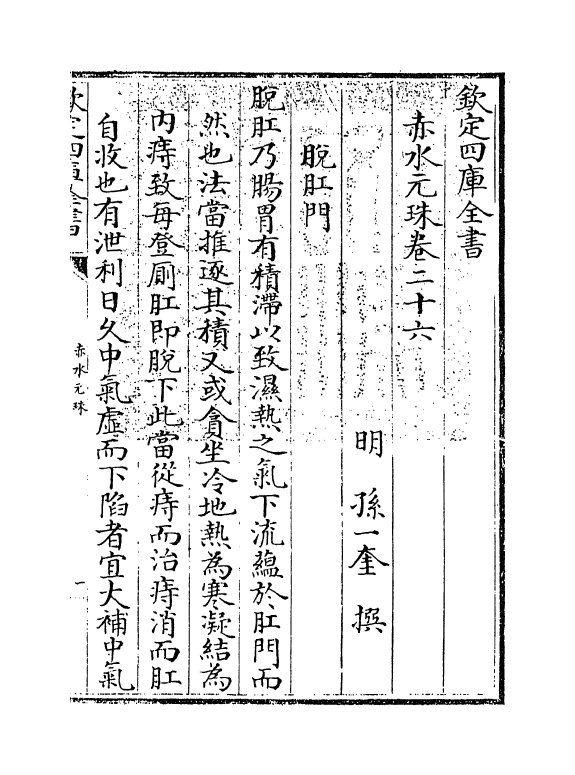 欽定四庫全書
赤水元珠卷二十六
明 孫一奎 撰
脫肛門
脫肛乃腸胃有積滯以致濕熱之氣下流蘊於肛門而
然也法當推逐其積又或貪坐冷地熱為寒凝結為
內痔致每登厠肛即脫下此當從痔而治痔消而肛
自收也有泄利日久中氣虛而下陷者宜大補中氣
欽定四庫全書
赤水元珠
一